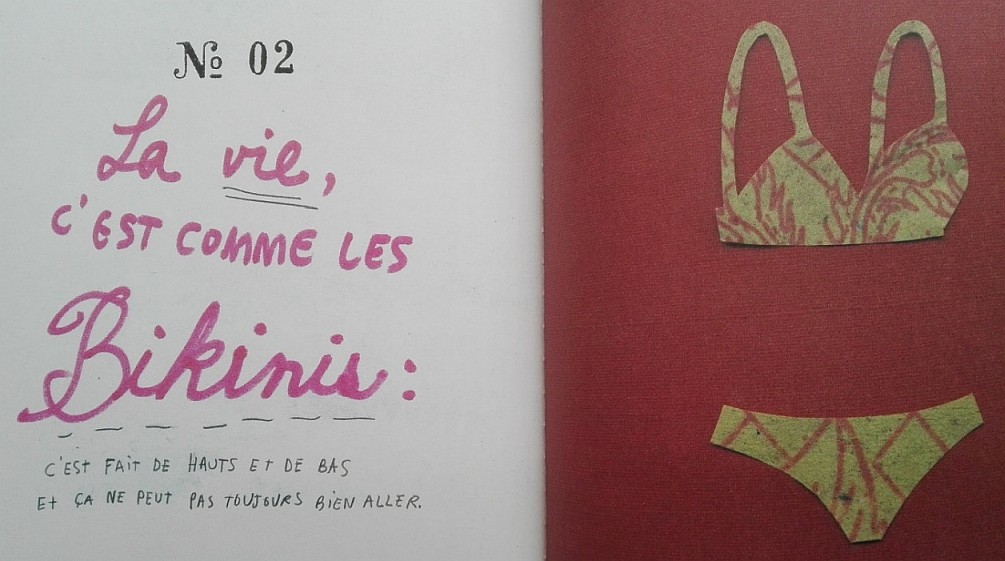 № 02
La vie,
C'EST COMME LES
Bikinis :
C'EST FAIT DE HAUTS ET DE BAS
ET ÇA NE PEUT PAS TOUJOURS BIEN ALLER.